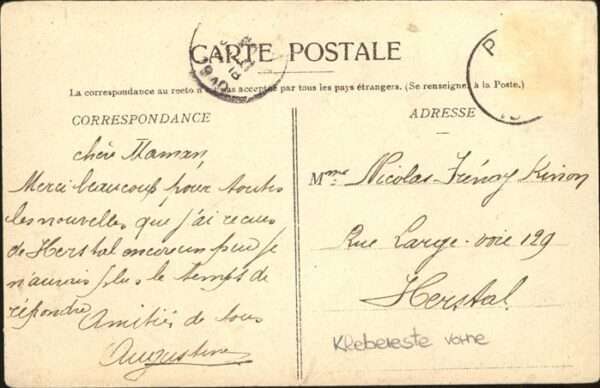 CARTE POSTALE
La correspondance au recto n'est pas acceptée par tous les pays étrangers. (Se renseigner à la Poste.)
CORRESPONDANCE
chère Maman,
Merci beaucoup pour toutes
les nouvelles que j'ai reçues
de Herstal encore un peu je
n'aurais plus le temps de
répondre
Amitiés de tous
Augustine
ADRESSE
Mme Nicolas
Rue Large-voie 129
Herstal
Klebereste vorne